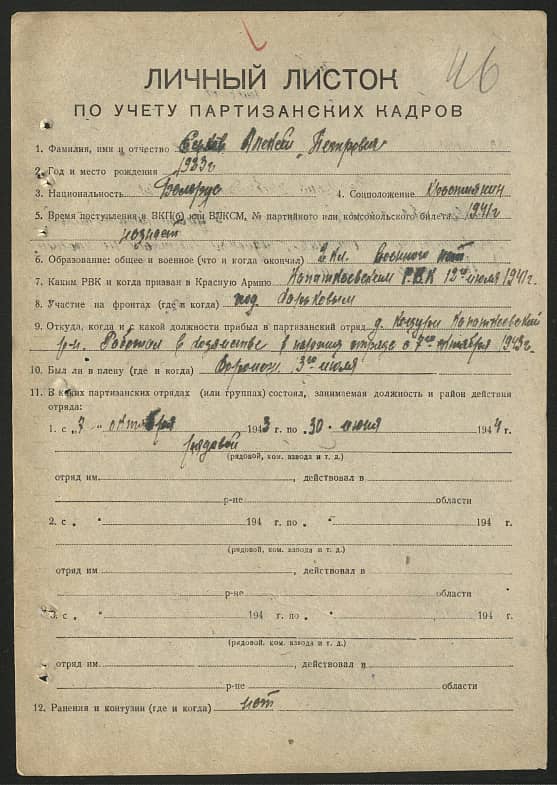 46
ЛИЧНЫЙ ЛИСТОК
ПО УЧЕТУ ПАРТИЗАНСКИХ КАДРОВ
1. Фамилия, имя и отчество Алексей Петрович
2. Год и место рождения 1923г
3. Национальность Белорус 4. Соцположение Крестьянин
5. Время поступления в ВКП(б) или ВЛКСМ, № партийного или комсомольского билета 1941г
6. Образование: общее и военное (что и когда окончил) 2 кл. военного нет
7. Каким РВК и когда призван в Красную Армию Копаткевическим РВК 12го июля 1941г.
8. Участие на фронтах (где и когда) под Харьковым
9. Откуда, когда и с какой должности прибыл в партизанский отряд д. Копаткевичский
р-н. Работал в хозяйстве в отряде с 7го октября 1943г.
10. Был ли в плену (где и когда) 3го июля
11. В каких партизанских отрядах (или группах) состоял, занимаемая должность и район действия
отряда:
1. с „7 „ октября 1943 г. по „30„ июня 1944 г.
рядовой
(рядовой, ком. взвода и т. д.)
отряд им. , действовал в
р-не области
2. с „ “ 194 г. по „ “ 194 г.
(рядовой, ком. взвода и т. д.)
отряд им. , действовал в
р-не области
3. с „ “ 194 г. по „ “ 194 г.
(рядовой, ком. взвода и т. д.)
отряд им. , действовал в
р-не области
12. Ранения и контузии (где и когда) нет